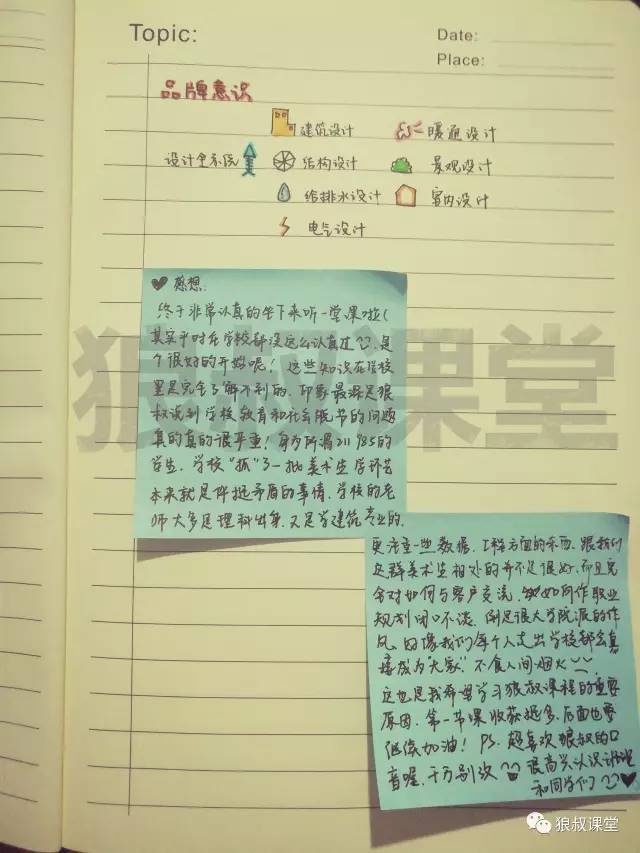 Topic:
Date:
Place:
品牌意识
建筑设计
暖通设计
设计全系统
结构设计
景观设计
给排水设计
室内设计
电气设计
感想.
终于非常认真的坐下来听一堂课啦(
其实平时在学校都没这么认真过 是
个很好的开始呢! 这些知识在学校
里是完全了解不到的. 印象最深是狼
叔说到学校教育和社会脱节的问题
真的真的很严重! 身为所谓211 985的
学生. 学校"抓"了一批美术生学环艺
本来就是件挺矛盾的事情. 学校的老
师大多是理科出身. 又是学建筑专业的.
更注重一些数据. 工程方面的东西. 跟我们
这群美术生相处的并不是很好. 而且完
全对如何与客户交流. 如何作职业
规划闭口不谈. 倒是很大学院派的作
风. 好像我们每个人走出学校都会直
接成为"大家". 不食人间烟火
这也是我希望学习狼叔课程的重要
原因. 第一节课收获挺多. 后面也要
继续加油! PS. 超喜欢狼叔的口
音喔. 千万别改 很高兴认识
和同学们
狼叔课堂
狼叔课堂